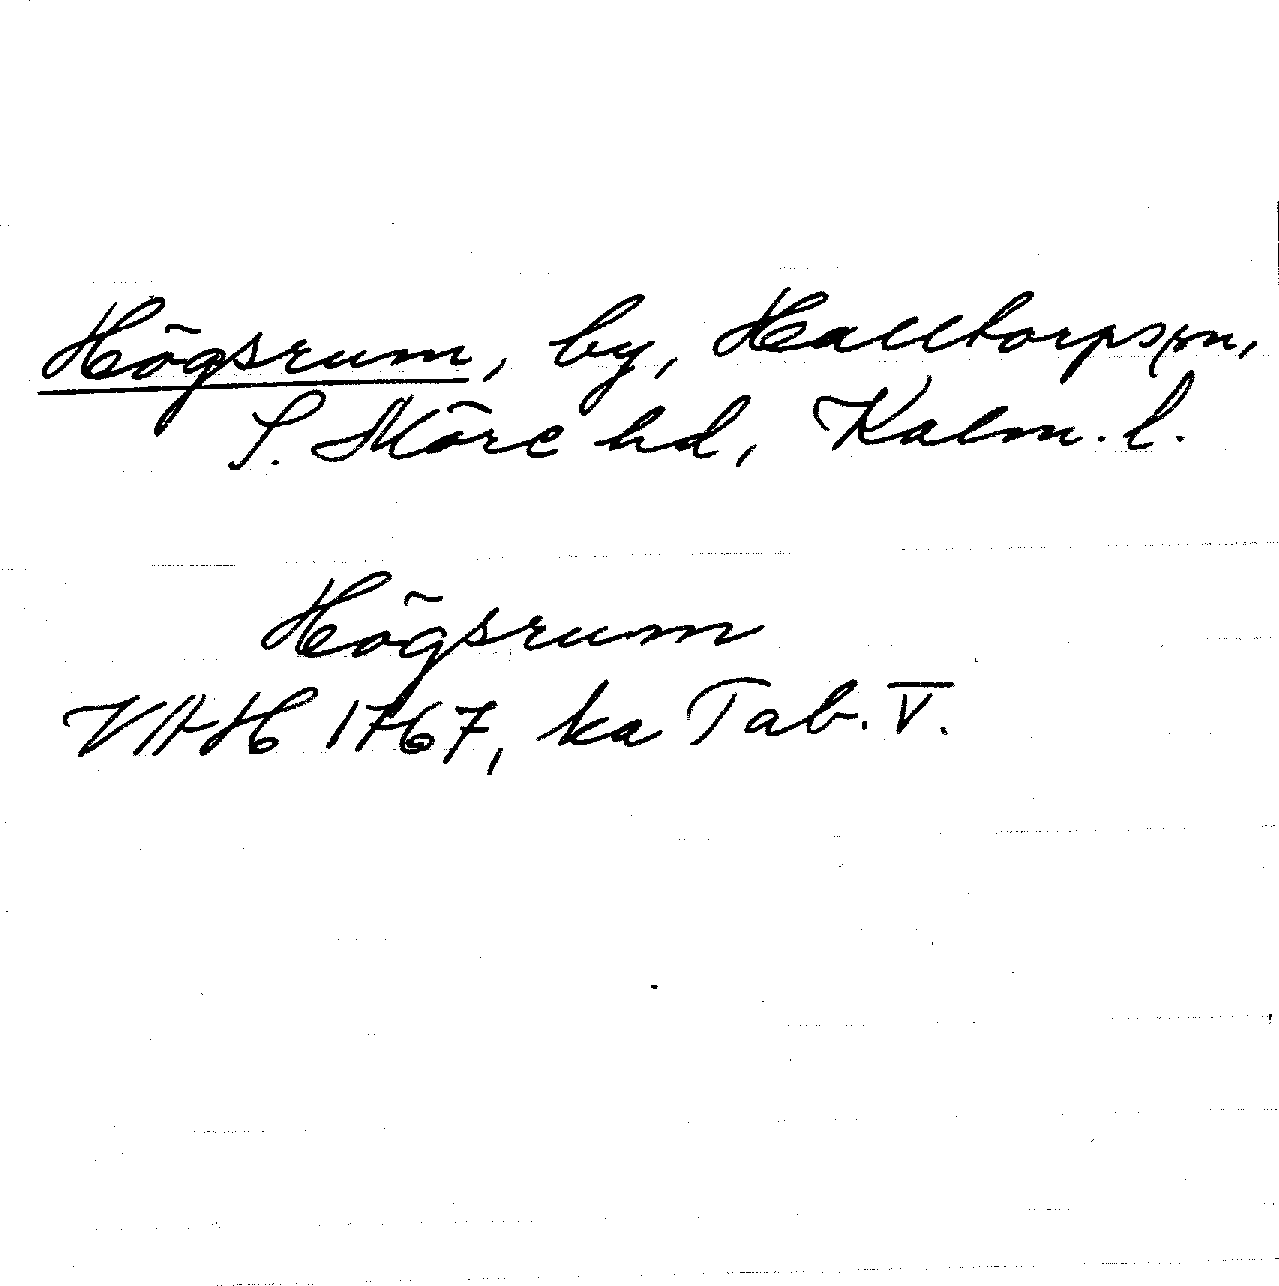 Högsrum, by, Halltorps sn,
S. Möre hd, Kalm. l.
Högsrum
VAH 1767, ka Tab. V.